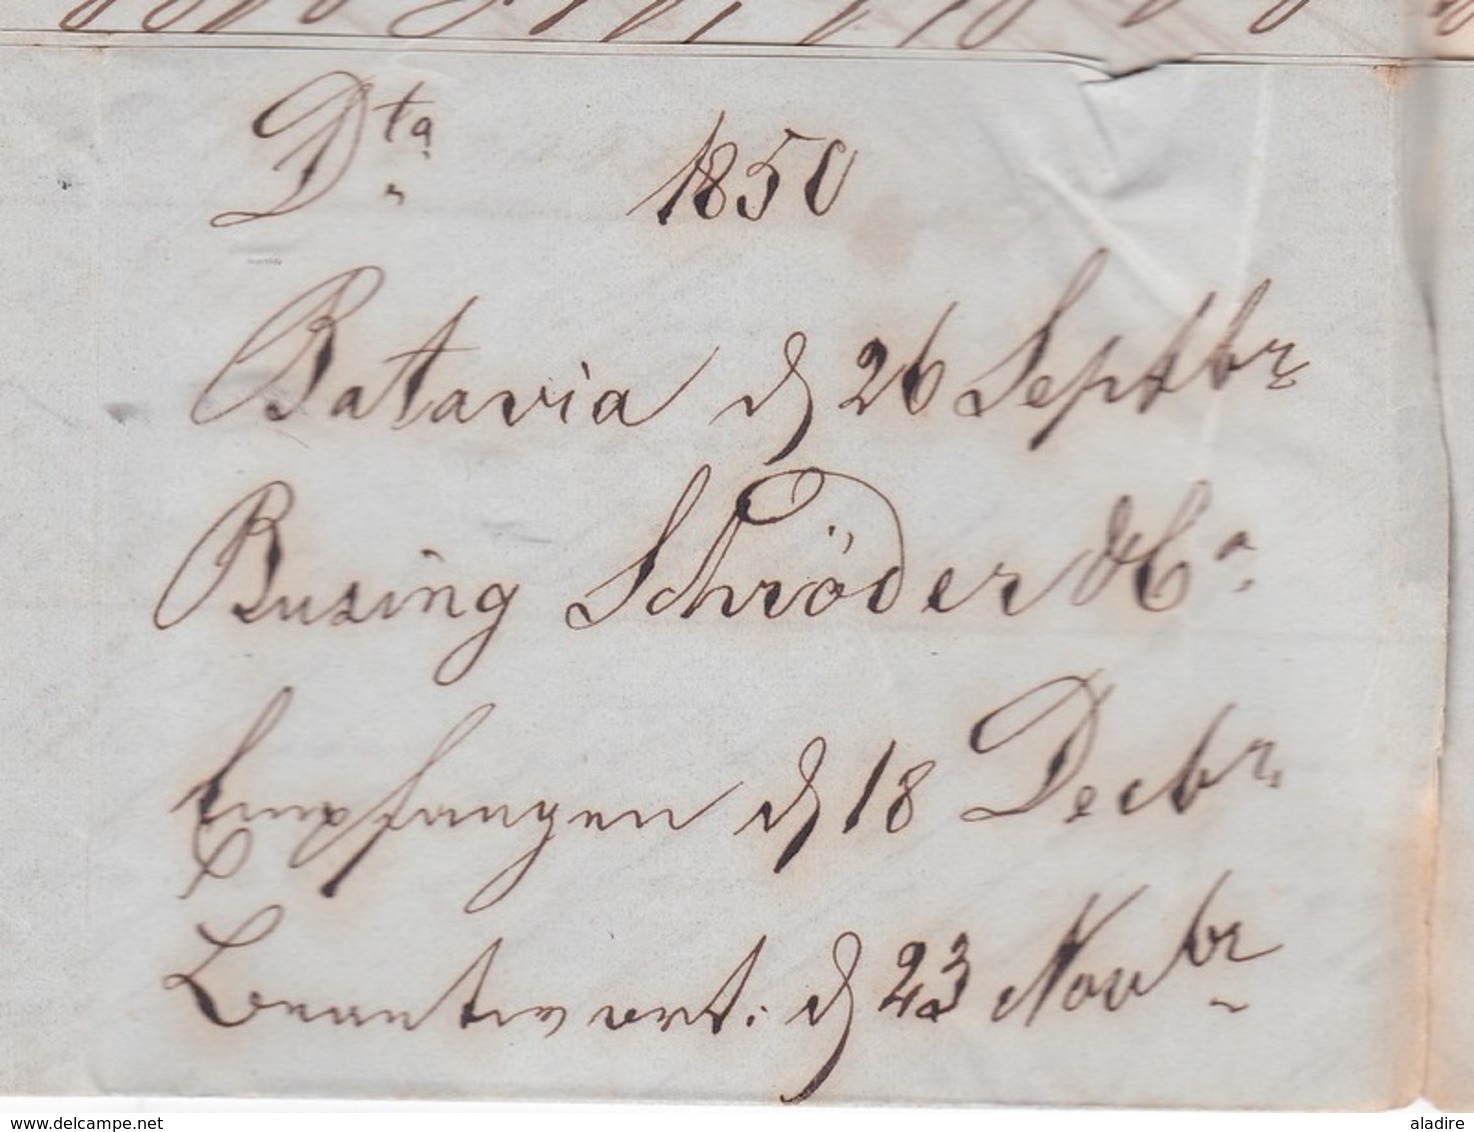 Dta 1850
Batavia d 26 Septbr
Busing Schröder & Ca
Empfangen d 18 Decbr
Beantwort: d 23 Novbr
delcampe.net
aladire